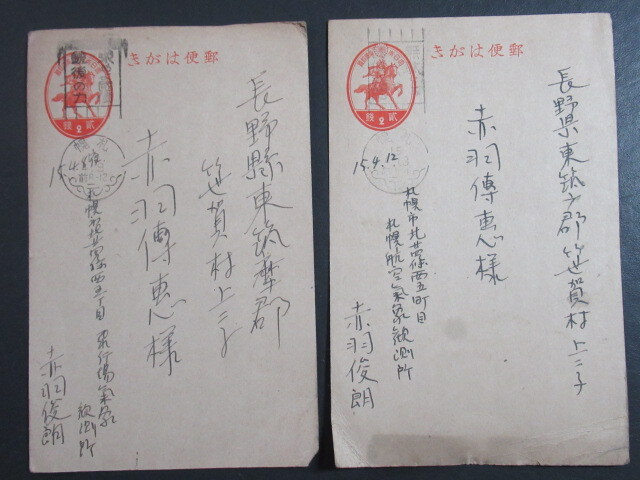 郵便はがき
貳2錢
銃後の力
長野縣東筑摩郡
笹賀村上二子
赤羽傳惠様
札幌
飛行場氣象
観測所
赤羽俊朗
郵便はがき
貳2錢
長野県東筑广郡笹賀村上二子
赤羽傳惠様
15.4.12
札幌市北廿四條西五町目
札幌航空氣象観測所
赤羽俊朗